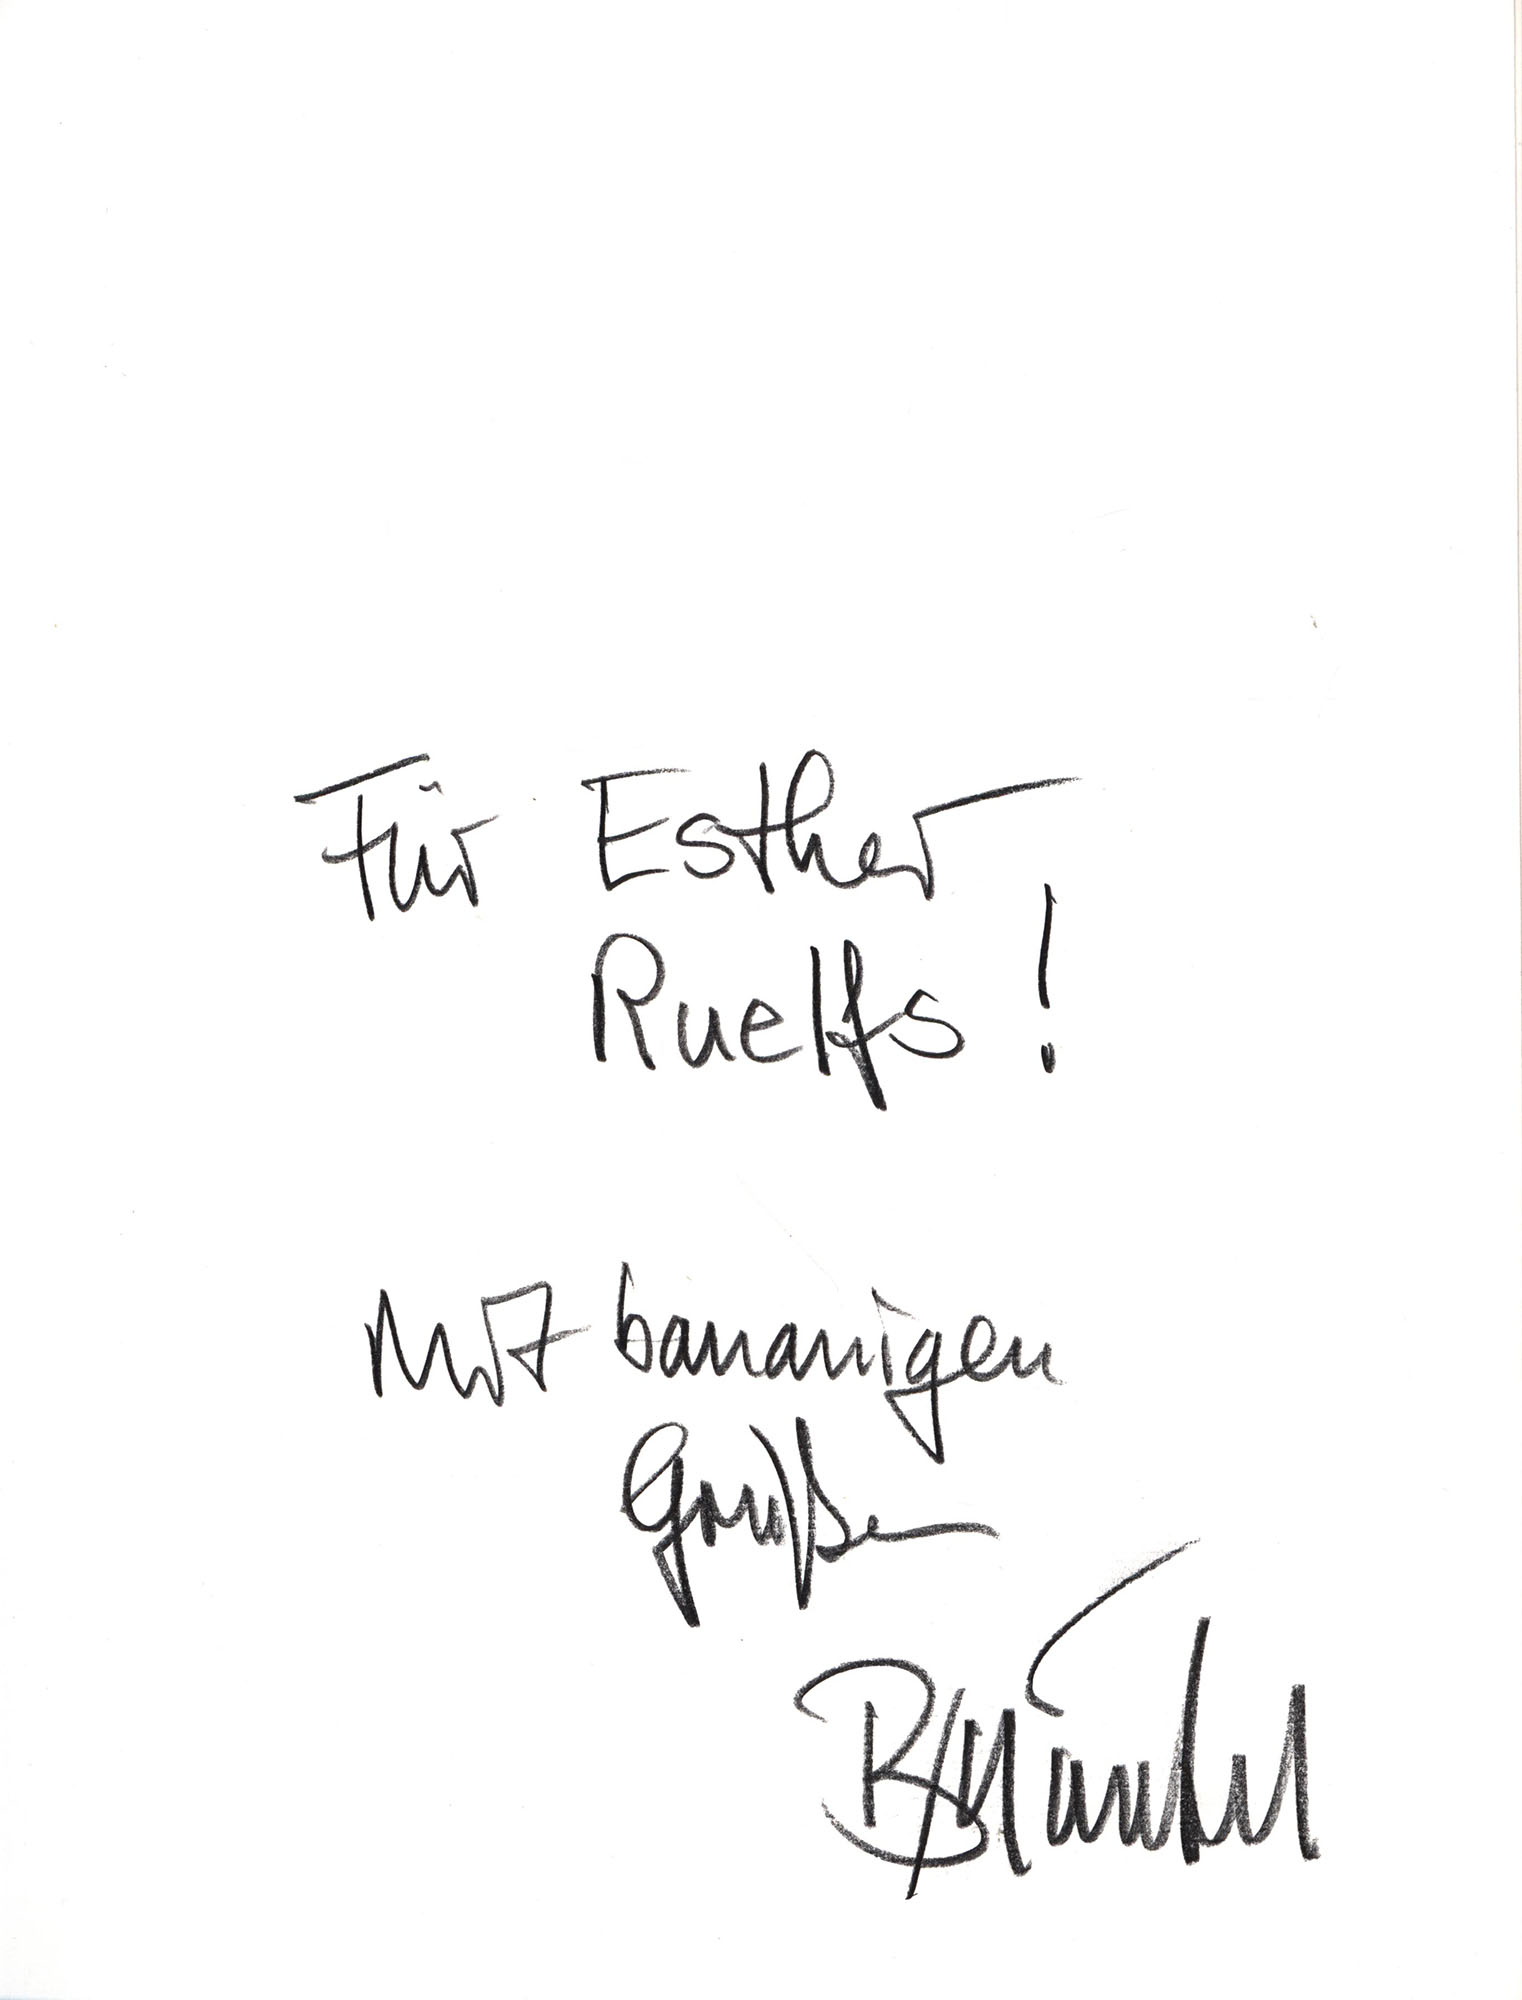 Für Esther
Ruelfs!
Mit bananigen
Grüßen